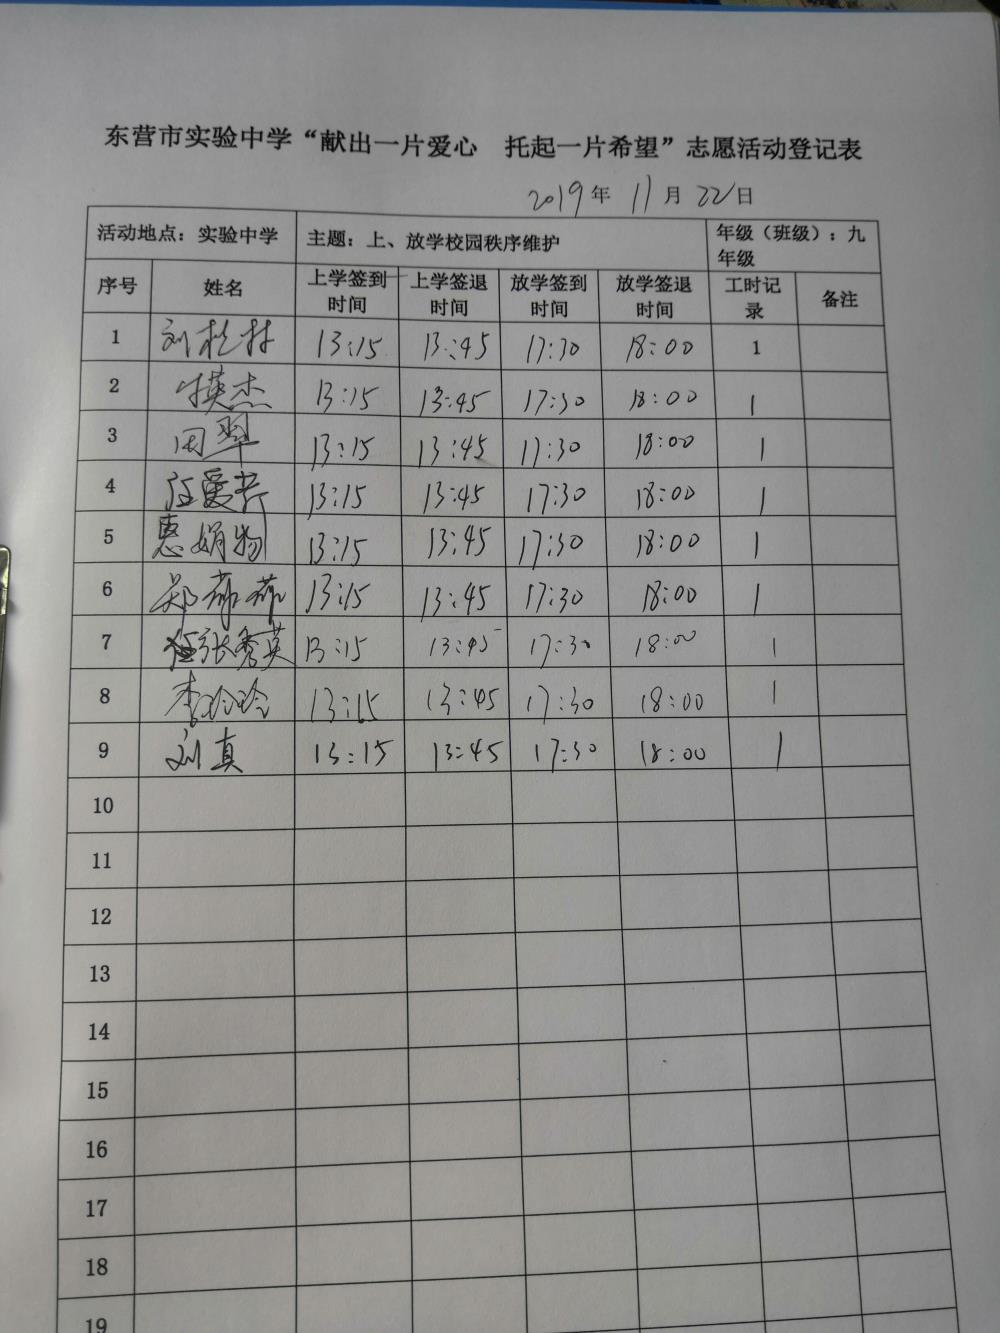 东营市实验中学“献出一片爱心 托起一片希望”志愿活动登记表
2019年 11月 22日
活动地点：实验中学 主题：上、放学校园秩序维护 年级（班级）：九年级
序号 姓名 上学签到时间 上学签退时间 放学签到时间 放学签退时间 工时记录 备注
1 刘桂林 13:15 13:45 17:30 18:00 1
2 杰 13:15 13:45 17:30 18:00 1
3 田翠 13:15 13:45 17:30 18:00 1
4 爱芳 13:15 13:45 17:30 18:00 1
5 惠娟 13:15 13:45 17:30 18:00 1
6 郑 13:15 13:45 17:30 18:00 1
7 张秀英 13:15 13:45 17:30 18:00 1
8 李玲玲 13:15 13:45 17:30 18:00 1
9 刘真 13:15 13:45 17:30 18:00 1
10
11
12
13
14
15
16
17
18
19